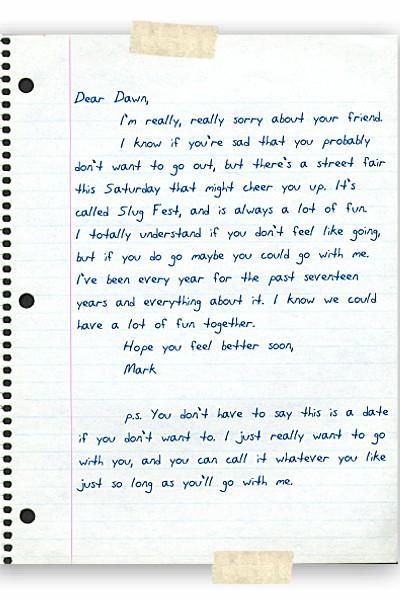 Dear Dawn,
I'm really, really sorry about your friend.
I know if you're sad that you probably
don't want to go out, but there's a street fair
this Saturday that might cheer you up. It's
called Slug Fest, and is always a lot of fun.
I totally understand if you don't feel like going,
but if you do go maybe you could go with me.
I've been every year for the past seventeen
years and everything about it. I know we could
have a lot of fun together.
Hope you feel better soon,
Mark
p.s. You don't have to say this is a date
if you don't want to. I just really want to go
with you, and you can call it whatever you like
just so long as you'll go with me.